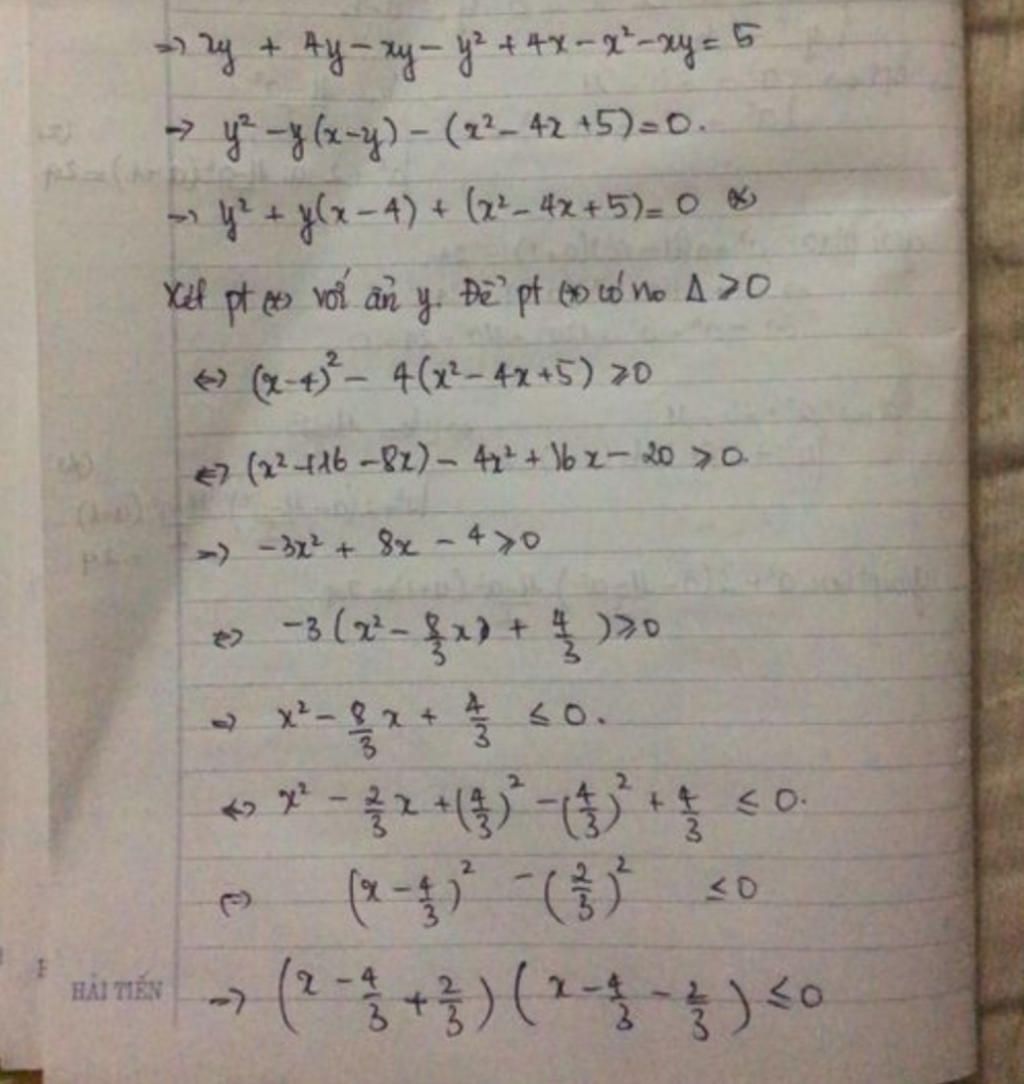 => xy + 4y - xy - y² + 4x - x² - xy = 5
=> y² - y(x-y) - (x² - 4x + 5) = 0.
=> y² + y(x - 4) + (x² - 4x + 5) = 0 (*)
Xét pt (*) với ẩn y. Để pt (*) có no Δ ≥ 0
<=> (x-4)² - 4(x² - 4x + 5) ≥ 0
<=> (x² + 16 - 8x) - 4x² + 16x - 20 ≥ 0.
=> -3x² + 8x - 4 ≥ 0
<=> -3(x² - 8/3 x) + 4/3) ≥ 0
=> x² - 8/3 x + 4/3 ≤ 0.
<=> x² - 2/3 x + (4/3)² - (4/3)² + 4/3 ≤ 0.
<=> (x - 4/3)² - (2/3)² ≤ 0
=> (x - 4/3 + 2/3)(x - 4/3 - 2/3) ≤ 0
HẢI TIẾN